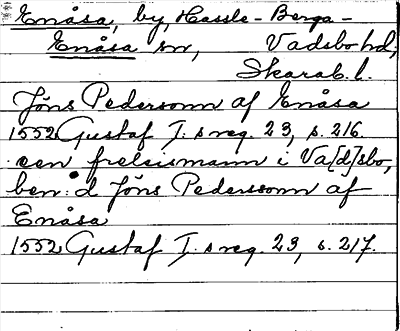 Enåsa, by, Hassle-Berga-
Enåsa sn, Vadsbo hd,
Skarab. l.
Jöns Pedersonn af Enåsa
1552 Gustaf I:s reg. 23, s. 216.
een frelsismann i Va[d]sbo,
ben:d Jöns Pederssonn af
Enåsa
1552 Gustaf I:s reg. 23, s. 217.